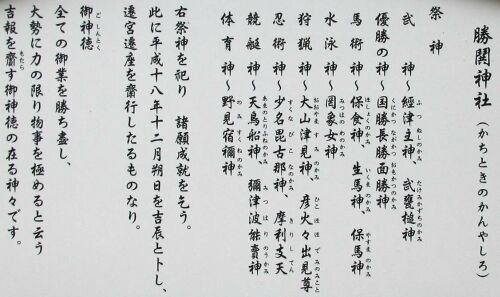 勝閧神社(かちときのかんやしろ)
祭神
武神~經津主神 武甕槌神
優勝の神~国勝長勝面勝神
馬術神~保食神、生馬神、保馬神
水泳神~罔象女神
狩猟神~大山津見神、彦火々出見尊
忍術神~少名毘古那神、摩利支天
競艇神~天鳥船神、彌津波能賣神
体育神~野見宿禰神
右祭神を祀り 諸願成就を乞う。
此に平成十八年十二月朔日を吉辰とトし、
遠宮遷座を齋行したるものなり。
御神徳
全ての御業を勝ち盡し、
大勢に力の限り物事を極めると云う
吉報を齎す御神徳の在る神々です。